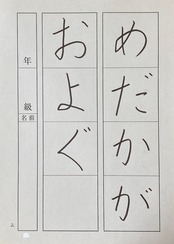 めだかが
およぐ
年
級
名前